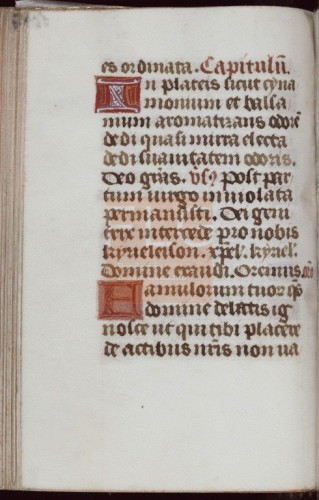 es ordinata. Capitulū.
In plateis sicut cyna
momum et balsa
mum aromatizans odorē
dedi quasi mirra electa
dedi suavitatem odoris.
Deo grās. Post par
tum virgo inviolata
permansisti. Dei geni
trix intercede pro nobis
kyrieleison. xpel'. kyriel'.
Domine exaudi. Oremus.
Famulorum tuor qs
domine delictis ig
nosce ut qui tibi placere
de actibus nr̄is non va